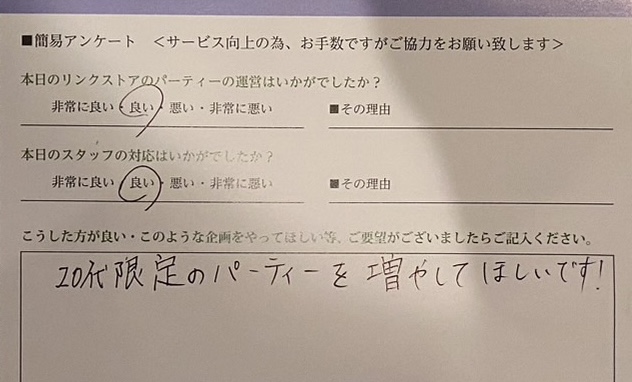 ■簡易アンケート ＜サービス向上の為、お手数ですがご協力をお願い致します＞
本日のリンクストアのパーティーの運営はいかがでしたか？
非常に良い・良い・悪い・非常に悪い ■その理由
本日のスタッフの対応はいかがでしたか？
非常に良い・良い・悪い・非常に悪い ■その理由
こうした方が良い・このような企画をやってほしい等、ご要望がございましたらご記入ください。
20代限定のパーティーを増やしてほしいです!